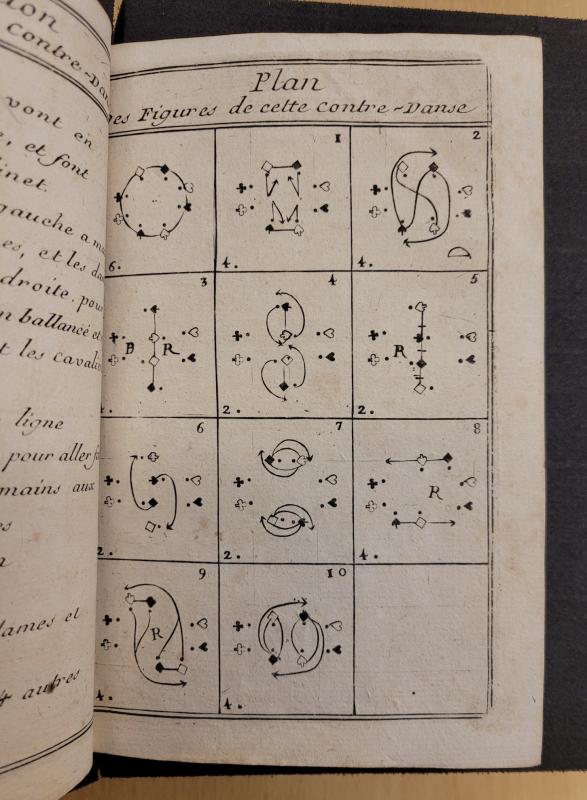 contre-Dan
vont en
et font
inet.
gauche a m
es, et les da
droite. pou
n ballancé et
t les cavali
ligne
pour aller f
mains aux
es
lames et
4 autres
Plan
Des Figures de cette contre-Danse
6.
1
4.
2
4.
3
B R
4.
4
2.
5
R
2.
6
2.
7
2.
8
R
4.
9
R
4.
10
4.